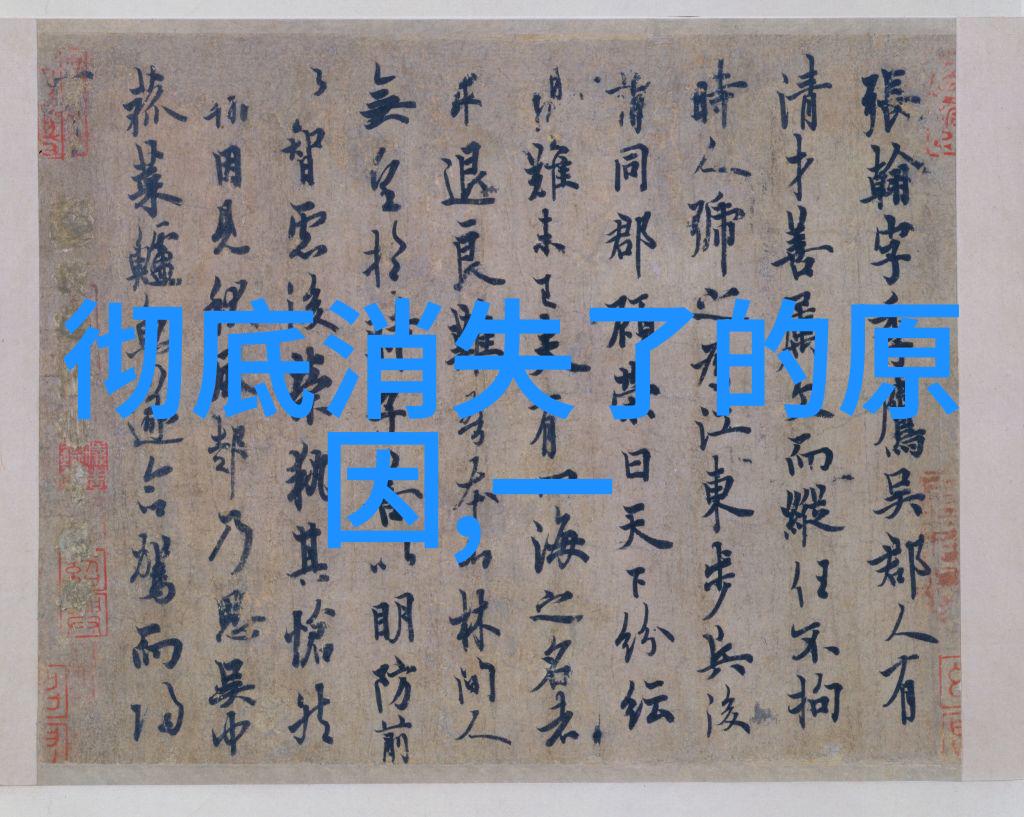 彻底消失了的原
因,一
張翰字季鷹吳郡人有
清才善屬文而縱任不拘
時人號之為江東步兵後
謂同郡顧榮曰天下紛紜
難未已夫有四海之名者
求退良難吾本山林間人
無望於時子善以明防前
以智慮後榮執其愴然
因見秋風起乃思吳中
菰菜鱸魚遂命駕而歸